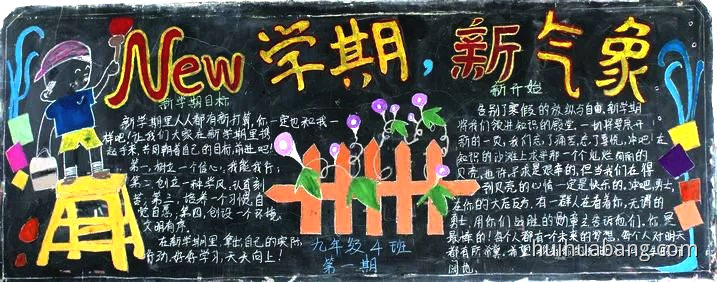 New 学期，新气象
新学期目标
新学期里人人都有新打算，你一定也和我一
样吧！让我们大家在新学期里携
起手来，共同朝着自己的目标，前进吧！
第一，树立一个信心，我能我行；
第二，创立一种学风，认真刻
苦，第三，培养一个习惯，自
觉自愿；第四，创设一个环境，
文明有序。
在新学期里，拿出自己的实际
行动，好好学习，天天向上！
九年级4班
第一期
新开始
告别了寒假的放纵与自由，新学期
将我们领进知识的殿堂，一切将要展开
新的一页，我们忘了痛苦，忘了昏悦，冲吧！在
知识的沙滩上求寻那一个个灿烂
贝壳，也许寻求是艰辛的，但当我们在得
到贝壳的心情一定是快乐的，冲吧，勇士，
在你的大后方，有一群人在看着你，无谓的
勇士，用你们战胜的勋章去告诉他们，你
最棒的！每个人都有一个未来的梦想，每个人对明天
都有所希望，
shuihuabang.com